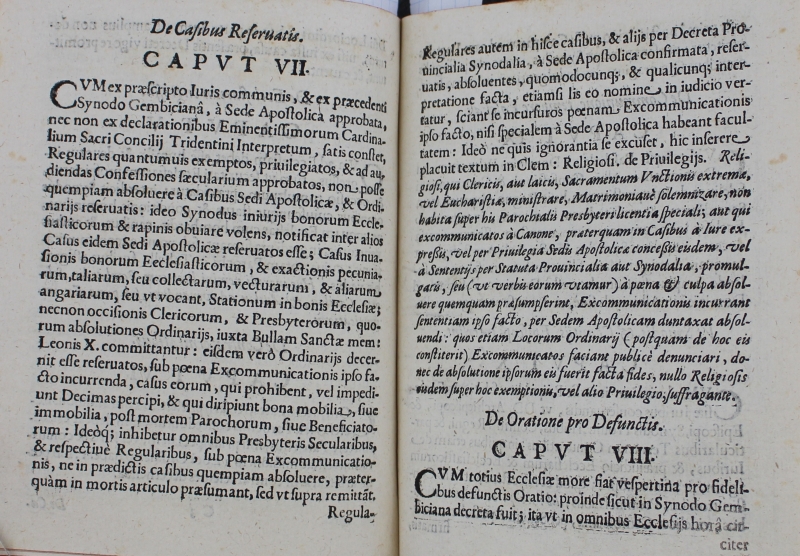 De Casibus Reseruatis.
CAPVT VII.
CVM ex præscripto Iuris communis, & ex præcedenti
Synodo Gembicianâ, à Sede Apostolica approbata,
nec non ex declarationibus Eminentissimorum Cardina-
lium Sacri Concilij Tridentini Interpretum, satis constet,
Regulares quantumuis exemptos, priuilegiatos, & ad au-
diendas Confessiones sæcularium approbatos, non posse
quempiam absoluere à Casibus Sedi Apostolicæ, & Ordi-
narijs reseruatis: ideo Synodus iniurijs bonorum Eccle-
siasticorum & rapinis obuiare volens, notificat inter alios
Casus eidem Sedi Apostolicæ reseruatos esse; Casus Inua-
sionis bonorum Ecclesiasticorum, & exactionis pecunia-
rum, taliarum, seu collectarum, vecturarum, & aliarum
angariarum, seu vt vocant, Stationum in bonis Ecclesiæ;
necnon occisionis Clericorum, & Presbyterorum, quo-
rum absolutiones Ordinarijs, iuxta Bullam Sanctæ mem:
Leonis X. committantur: eisdem verò Ordinarijs decer-
nit esse reseruatos, sub pœna Excommunicationis ipso fa-
cto incurrenda, casus eorum, qui prohibent, vel impedi-
unt Decimas percipi, & qui diripiunt bona mobilia, siue
immobilia, post mortem Parochorum, siue Beneficiato-
rum: Ideòq; inhibetur omnibus Presbyteris Secularibus,
& respectiuè Regularibus, sub pœna Excommunicatio-
nis, ne in prædictis casibus quempiam absoluere, præter-
quàm in mortis articulo præsumant, sed vt supra remittãt.
Regula-
Regulares autem in hisce casibus, & alijs per Decreta Pro-
uincialia Synodalia, à Sede Apostolica confirmata, reser-
uatis, absoluentes, quomodocunq;, & qualicunq; inter-
pretatione facta, etiamsi lis eo nomine in iudicio verta-
tur, sciant se incursuros pœnam, Excommunicationis
ipso facto, nisi specialem à Sede Apostolica habeant facul-
tatem: Ideò ne quis ignorantia se excuset, hic inserere
placuit textum in Clem: Religiosi, de Priuilegijs. Reli-
giosi, qui Clericis, aut laicis, Sacramentum Vnctionis extremæ,
vel Eucharistiæ, ministrare, Matrimoniauè solemnizare, non
habita super his Parochialis Presbyteri licentia speciali; aut qui
excommunicatos à Canone, præterquam in Casibus à Iure ex-
pressis, vel per Priuilegia Sedis Apostolicæ concessis eisdem, vel
à Sententijs per Statuta Prouincialia aut Synodalia, promul-
gatis, seu (vt verbis eorum vtamur) à pœna & culpa absol-
uere quempiam præsumpserint, Excommunicationis incurrant
sententiam ipso facto, per Sedem Apostolicam duntaxat absol-
uendi: quos etiam Locorum Ordinarij (postquam de hoc eis
constiterit) Excommunicatos faciant publicè denunciari, do-
nec de absolutione ipsorum eis fuerit facta fides, nullo Religiosis
eisdem super hoc exemptionis, vel alio Priuilegio, suffragante.
De Oratione pro Defunctis.
CAPVT VIII.
CVM totius Ecclesiæ more fiat vespertina pro fideli-
bus defunctis Oratio: proinde sicut in Synodo Gem-
biciana decreta fuit; ita vt in omnibus Ecclesijs horâ cir-
citer